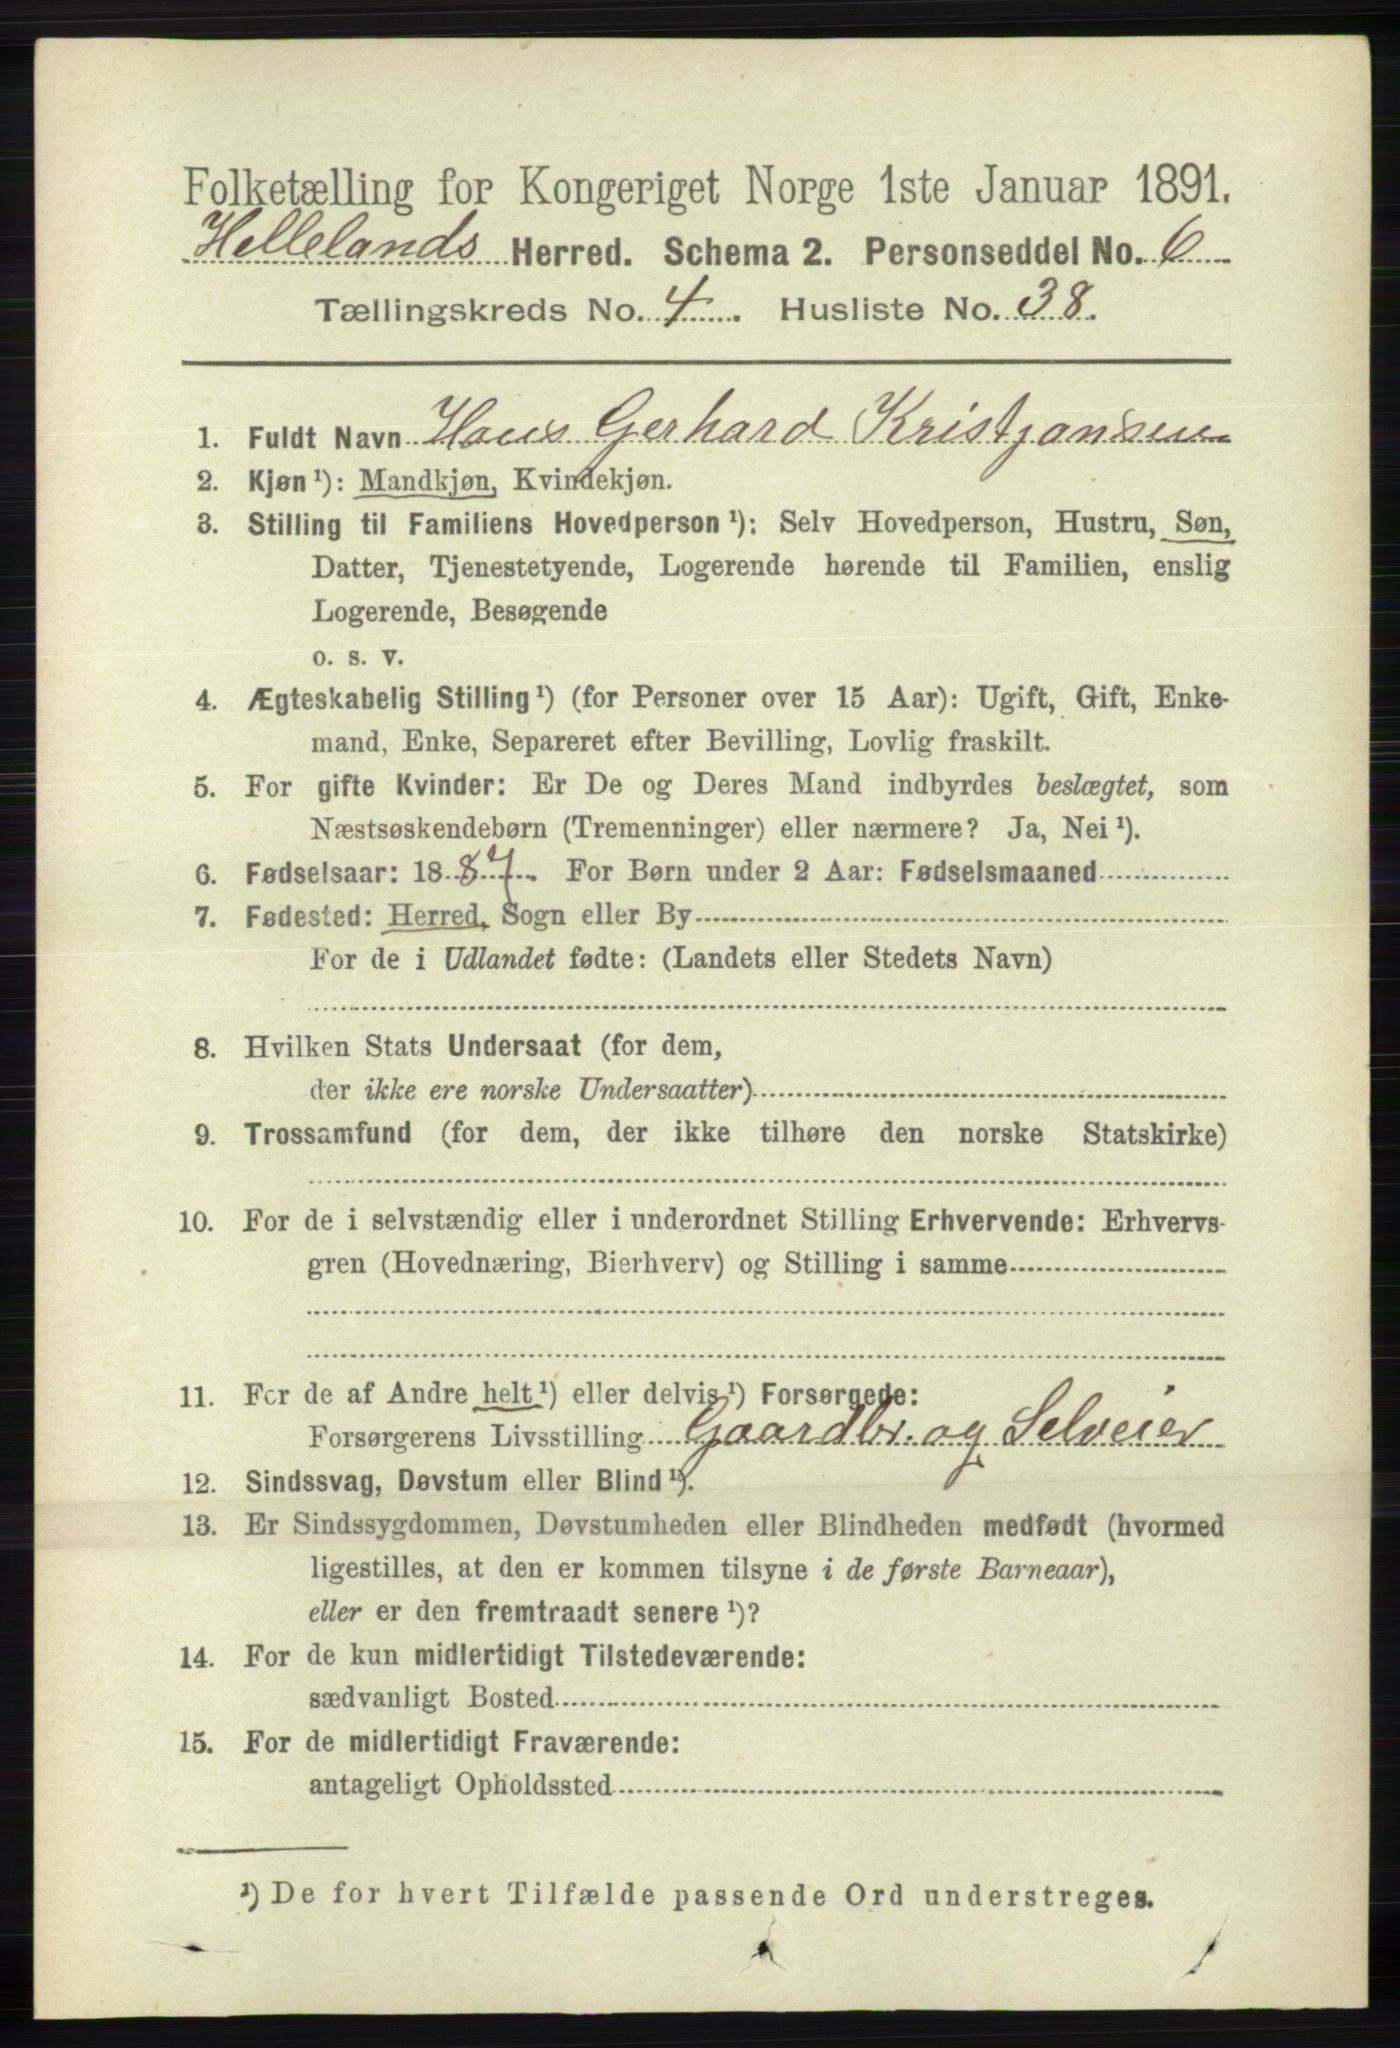 Folketælling for Kongeriget Norge 1ste Januar 1891.
Hellelands Herred. Schema 2. Personseddel No. 6
Tællingskreds No. 4. Husliste No. 38.
1. Fuldt Navn Hans Gerhard Kristjansen
2. Kjøn¹): Mandkjøn, Kvindekjøn.
3. Stilling til Familiens Hovedperson¹): Selv Hovedperson, Hustru, Søn,
Datter, Tjenestetyende, Logerende hørende til Familien, enslig
Logerende, Besøgende
o. s. v.
4. Ægteskabelig Stilling¹) (for Personer over 15 Aar): Ugift, Gift, Enke-
mand, Enke, Separeret efter Bevilling, Lovlig fraskilt.
5. For gifte Kvinder: Er De og Deres Mand indbyrdes beslægtet, som
Næstsøskendebørn (Tremenninger) eller nærmere? Ja, Nei¹).
6. Fødselsaar: 1887. For Børn under 2 Aar: Fødselsmaaned
7. Fødested: Herred, Sogn eller By
For de i Udlandet fødte: (Landets eller Stedets Navn)
8. Hvilken Stats Undersaat (for dem,
der ikke ere norske Undersaatter)
9. Trossamfund (for dem, der ikke tilhøre den norske Statskirke)
10. For de i selvstændig eller i underordnet Stilling Erhvervende: Erhvervs-
gren (Hovednæring, Bierhverv) og Stilling i samme
11. For de af Andre helt¹) eller delvis¹) Forsørgede:
Forsørgerens Livsstilling Gaardbr. og Selveier
12. Sindssvag, Døvstum eller Blind¹).
13. Er Sindssygdommen, Døvstumheden eller Blindheden medfødt (hvormed
ligestilles, at den er kommen tilsyne i de første Barneaar),
eller er den fremtraadt senere¹)?
14. For de kun midlertidigt Tilstedeværende:
sædvanligt Bosted
15. For de midlertidigt Fraværende:
antageligt Opholdssted
¹) De for hvert Tilfælde passende Ord understreges.